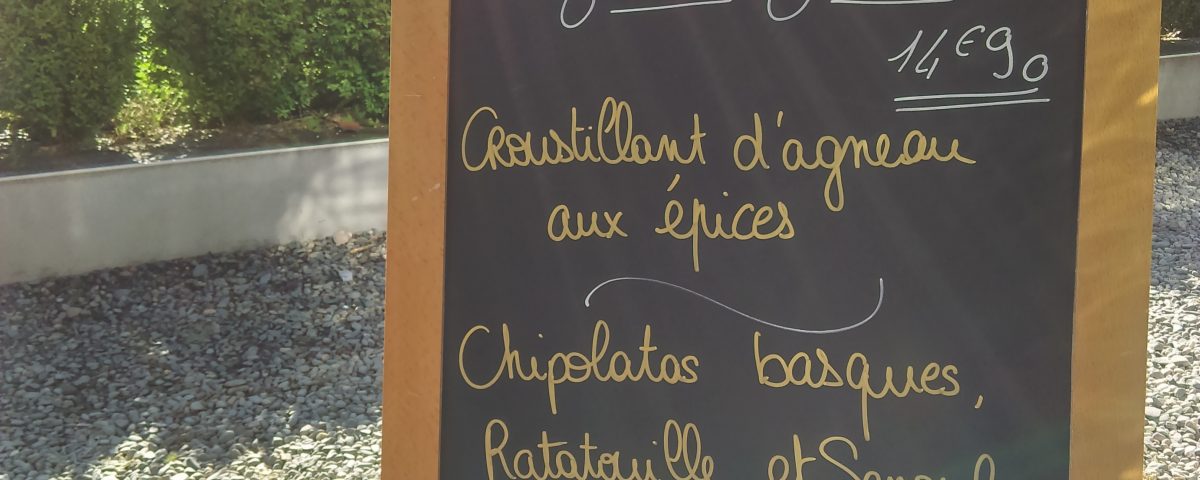 14€90
Croustillant d'agneau
aux épices
Chipolatas basques,
Ratatouille et